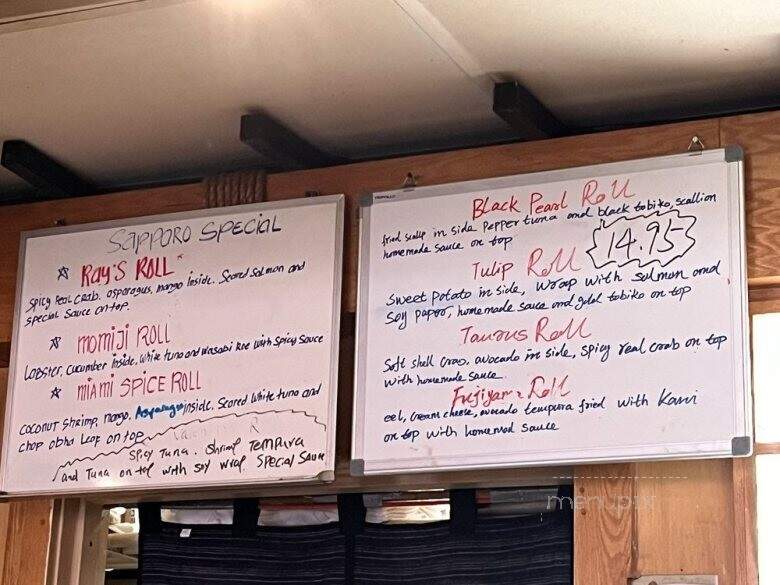 SAPPORO SPECIAL
☆ Ray'S ROLL *
Spicy Real Crab. asparagus, mango inside. Seared Salmon and
special Sauce on top.
☆ momiJI ROLL
LOBSTER, cucumber inside, White tuna and wasabi with Spicy Sauce
☆ MIAMI SPICE ROLL
COCONUT Shrimp, mango, Asparagus inside. Seared White tuna and
chop obha Leaf on top
R
Spicy Tuna. Shrimp TEMPURA
and Tuna on top with soy wrap SPECIAL Saure
Black Pearl Roll
fried scallp in side Pepper tuna and black tobiko, scallion
homemade sauce on top
14.95
Tulip Roll
Sweet Potato in side, Wrap with salmon and
Soy papor, homemade sauce and gold tobiko on top
Taurus Roll
Soft shell crab, avocado in side, spicy real crab on top
with homemade sauce
Fujiyama Roll
eel, cream cheese, avocado tempura fried with Kani
on top with homemad sauce
menupix